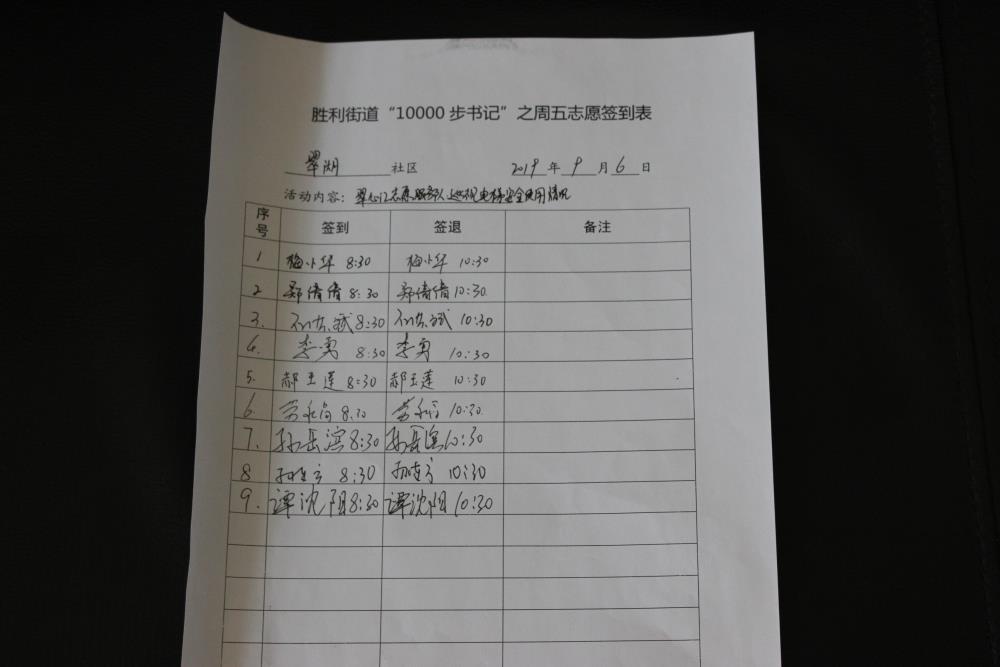 胜利街道“10000步书记”之周五志愿签到表
翠湖 社区 2019 年 9 月 6 日
活动内容：翠湖社区志愿服务队巡视电梯安全使用情况
序号 签到 签退 备注
1 梅小华 8:30 梅小华 10:30
2 郑倩倩 8:30 郑倩倩 10:30
3. 8:30 10:30
4. 李勇 8:30 李勇 10:30
5. 郝玉莲 8:30 郝玉莲 10:30
6. 8:30 10:30
7. 孙岳滨 8:30 孙岳滨 10:30
8 8:30 10:30
9. 谭沈阳 8:30 谭沈阳 10:30